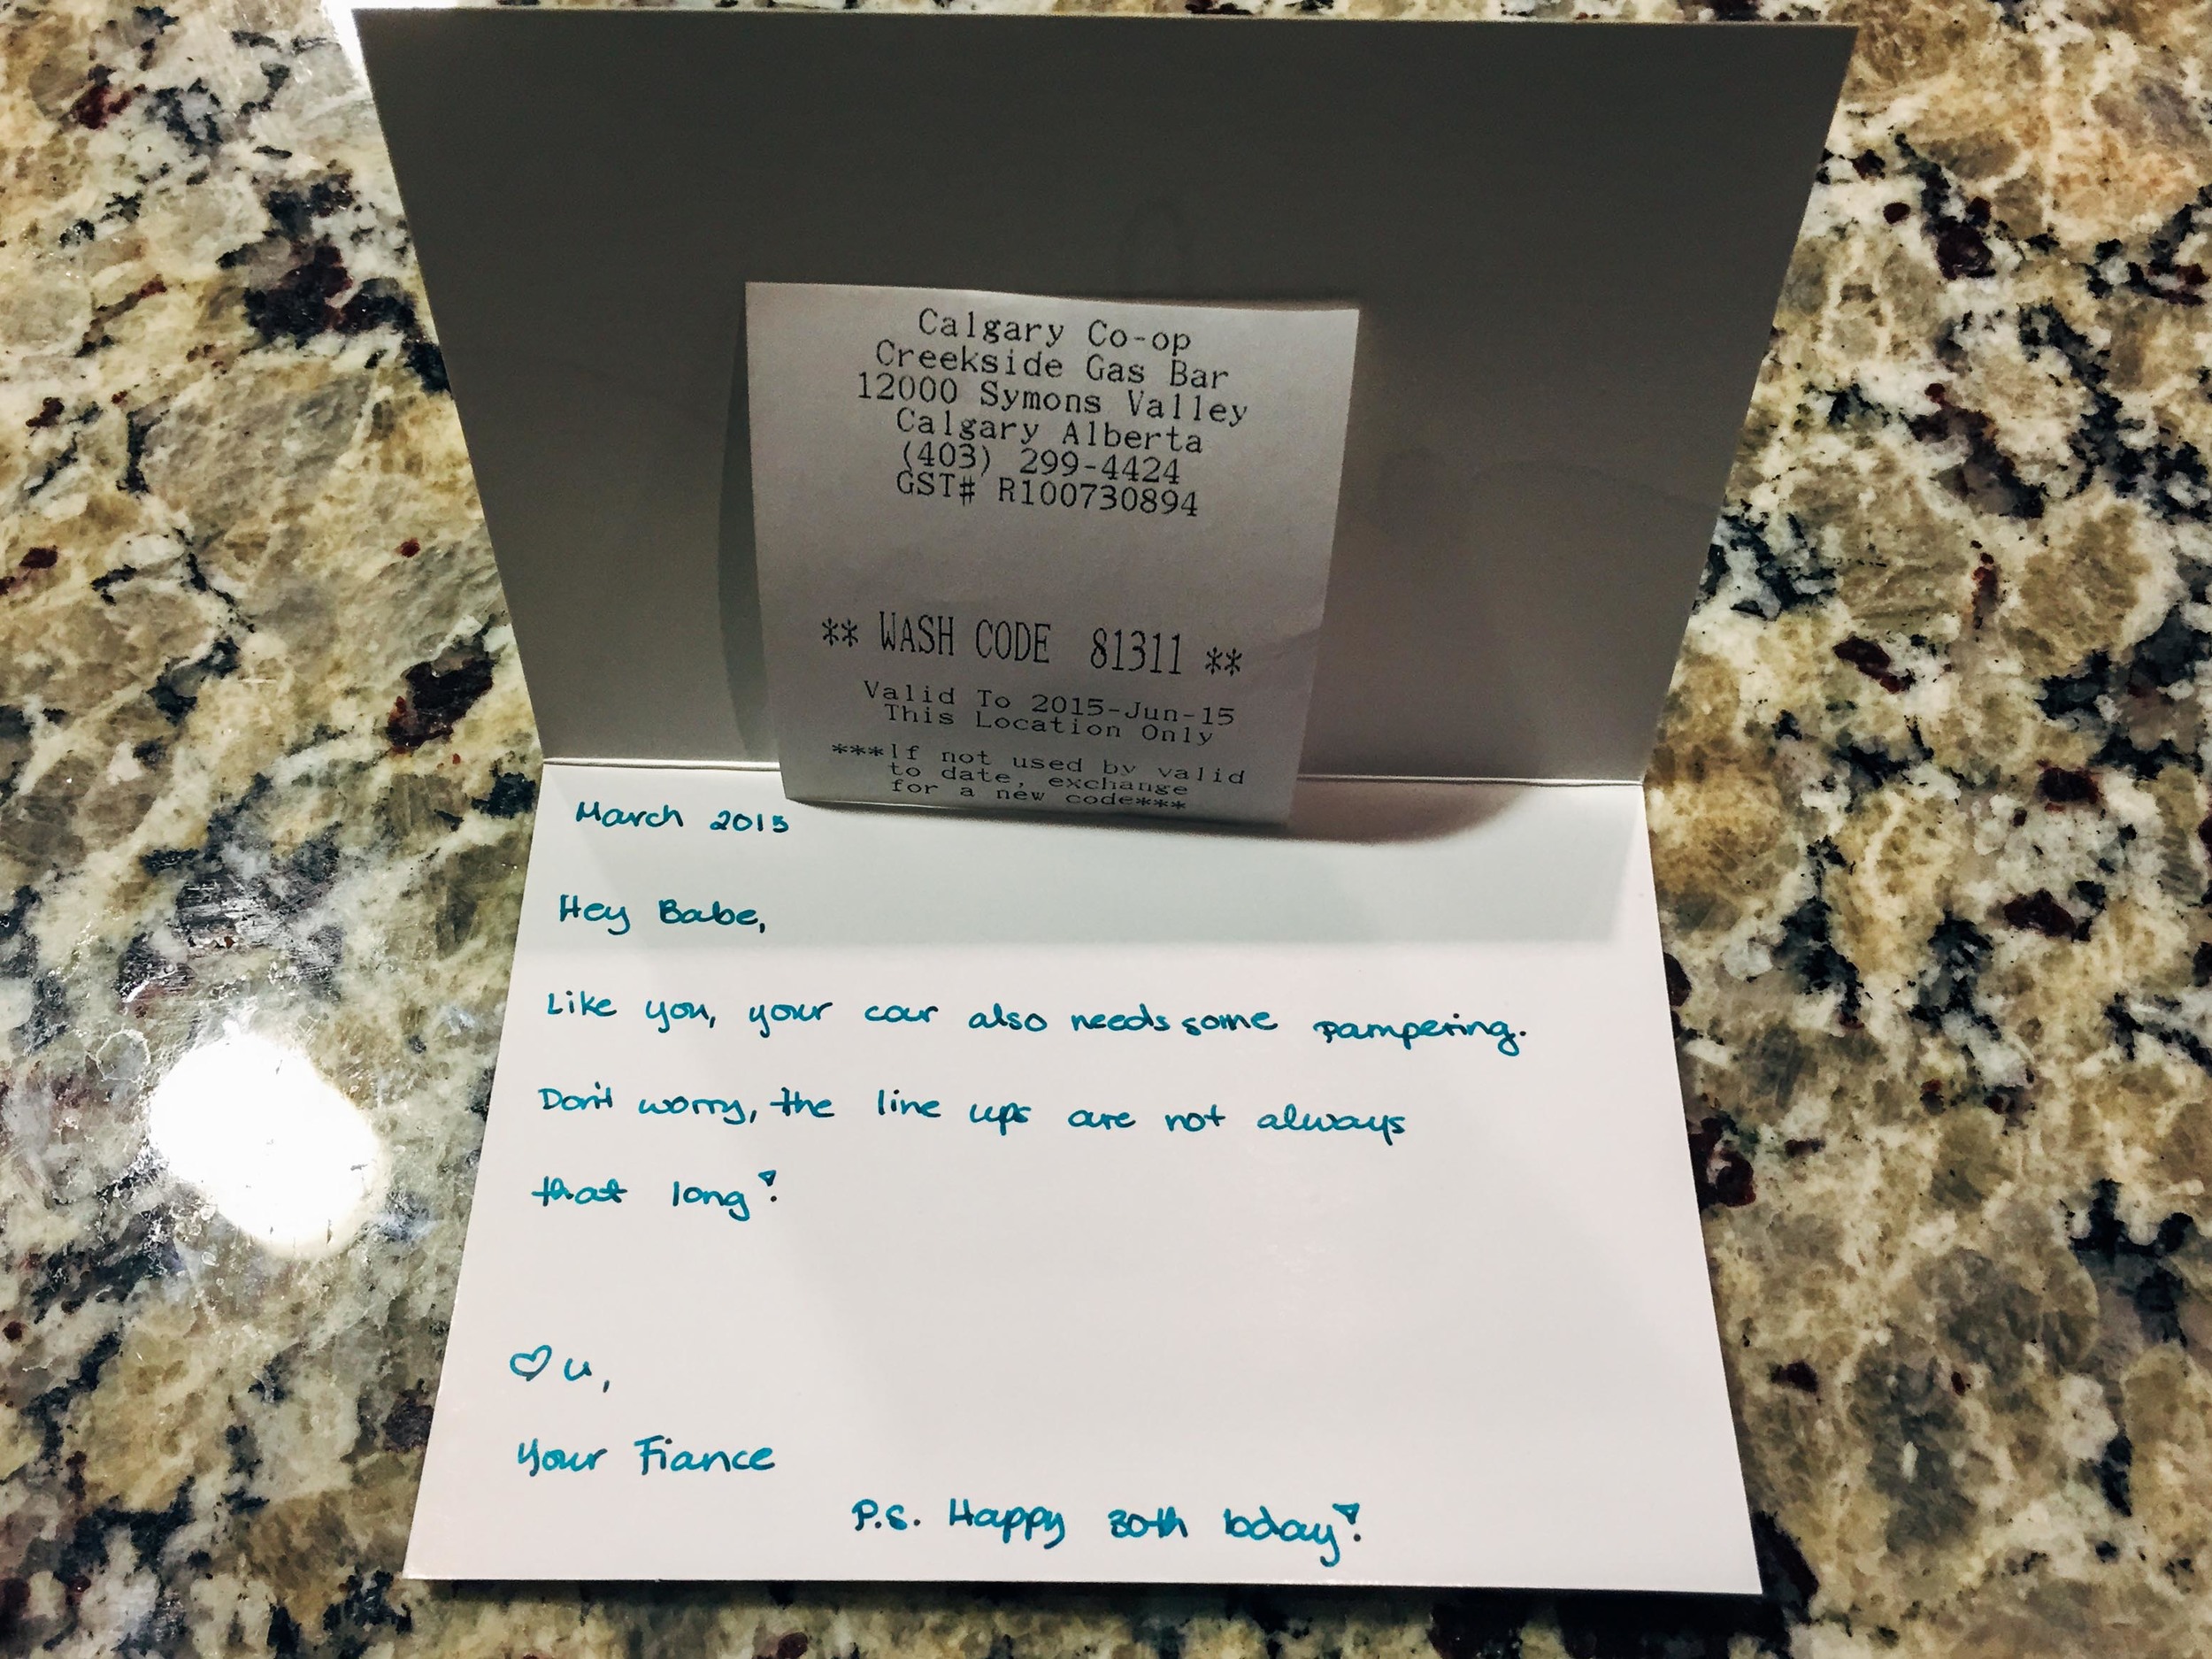 Calgary Co-op
Creekside Gas Bar
12000 Symons Valley
Calgary Alberta
(403) 299-4424
GST# R100730894
** WASH CODE 81311 **
Valid To 2015-Jun-15
This Location Only
***If not used by valid
to date, exchange
for a new code***
March 2015
Hey Babe,
Like you, your car also needs some pampering.
Don't worry, the line ups are not always
that long!
♡ u,
Your Fiance
P.S. Happy 30th bday!